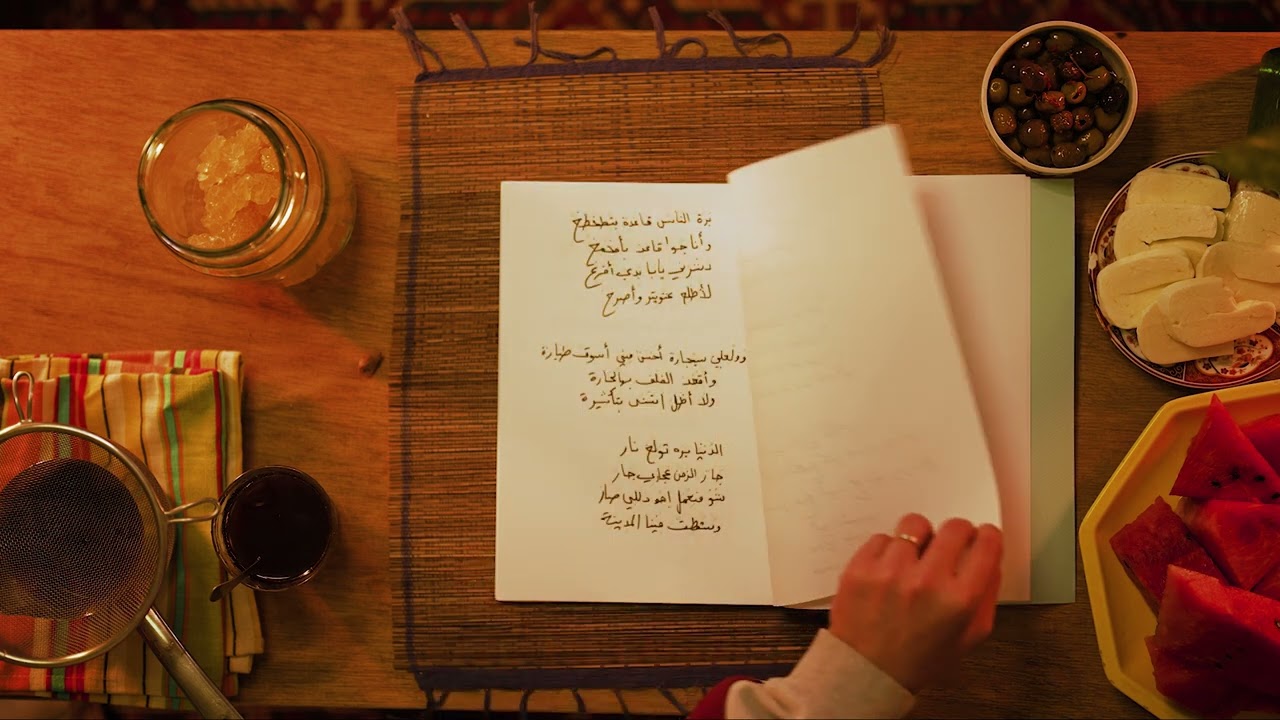 برة الناس قاعدة بتطخطخ
وأنا جوا قاعد بأفخفخ
يا بابا بدي أفرع
لأطلع عتويتر وأصرخ
وولعلي سيجارة أحسن مني أسوق طيارة
وأقعد الفلف بهالحارة
ولا أظل استنى بتأشيرة
الدنيا بره تولع نار
جار الزمن علي جار
شو منعمل اللي صار
وسقطت فينا المدينة